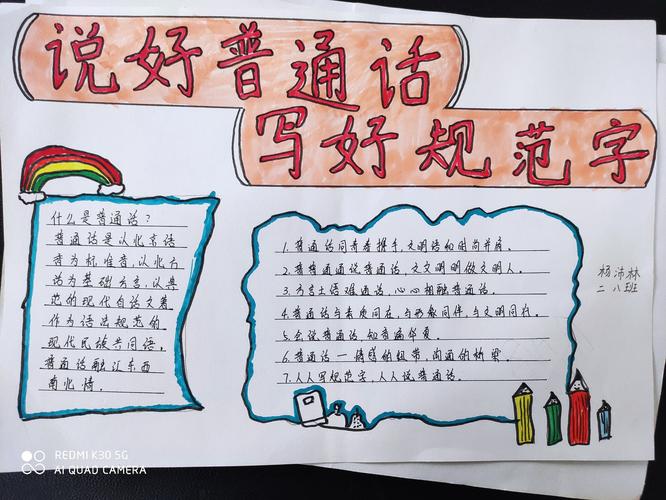 说好普通话
写好规范字
什么是普通话?
普通话是以北京语
音为标准音,以北方
话为基础方言,以典
范的现代白话文著
作为语法规范的
现代民族共同语。
普通话融江东西
南北情。
1.普通话同青春携手,文明语和时尚并肩。
2.普普通通说普通话,文文明明做文明人。
3.方言土语难通话,心心相融普通话。
4.普通话与素质同在,与形象同伴,与文明同行。
5.会说普通话,知音遍华夏。
6.普通话—情感的纽带,沟通的桥梁。
7.人人写规范字,人人说普通话。
杨沛林
二八班
REDMI K30 5G
AI QUAD CAMERA